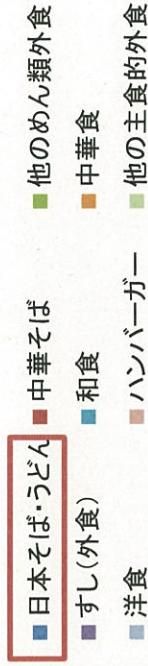 日本そば・うどん 中華そば 他のめん類外食
すし(外食) 和食 中華食
洋食 ハンバーガー 他の主食的外食